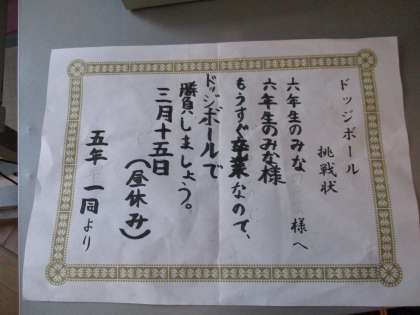 ドッジボール
挑戦状
六年生のみな
様へ
六年生のみな様
もうすぐ卒業なので、
ドッジボールで
勝負しましょう。
三月十五日
(昼休み)
五年 一同より